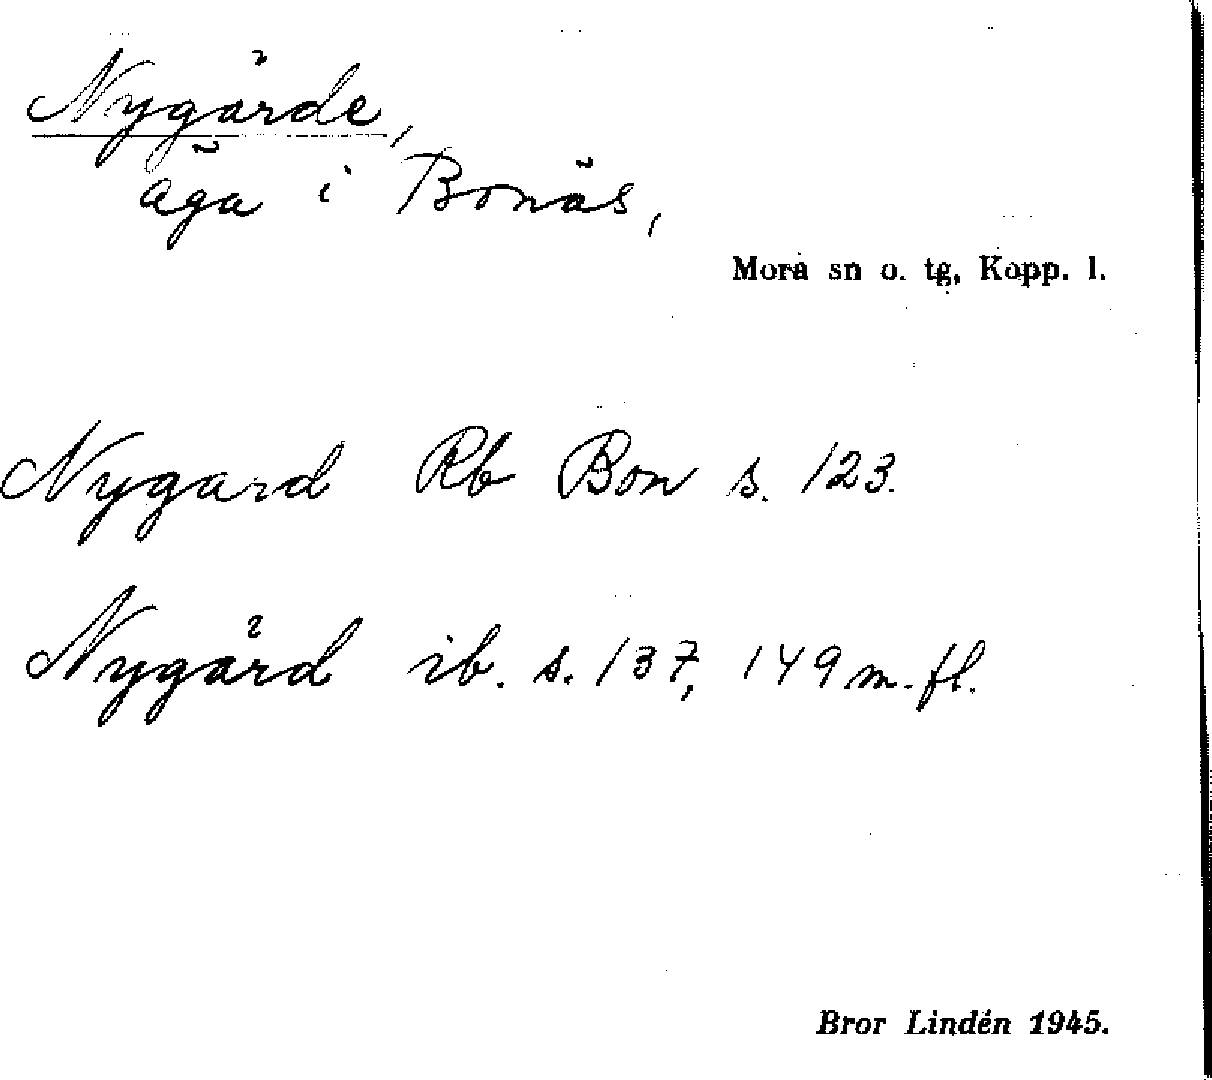 Nygärde,
äga i Bonäs,
Mora sn o. tg, Kopp. l.
Nygard Rb Bon s. 123.
Nygärd ib. s. 137, 149 m. fl.
Bror Lindén 1945.